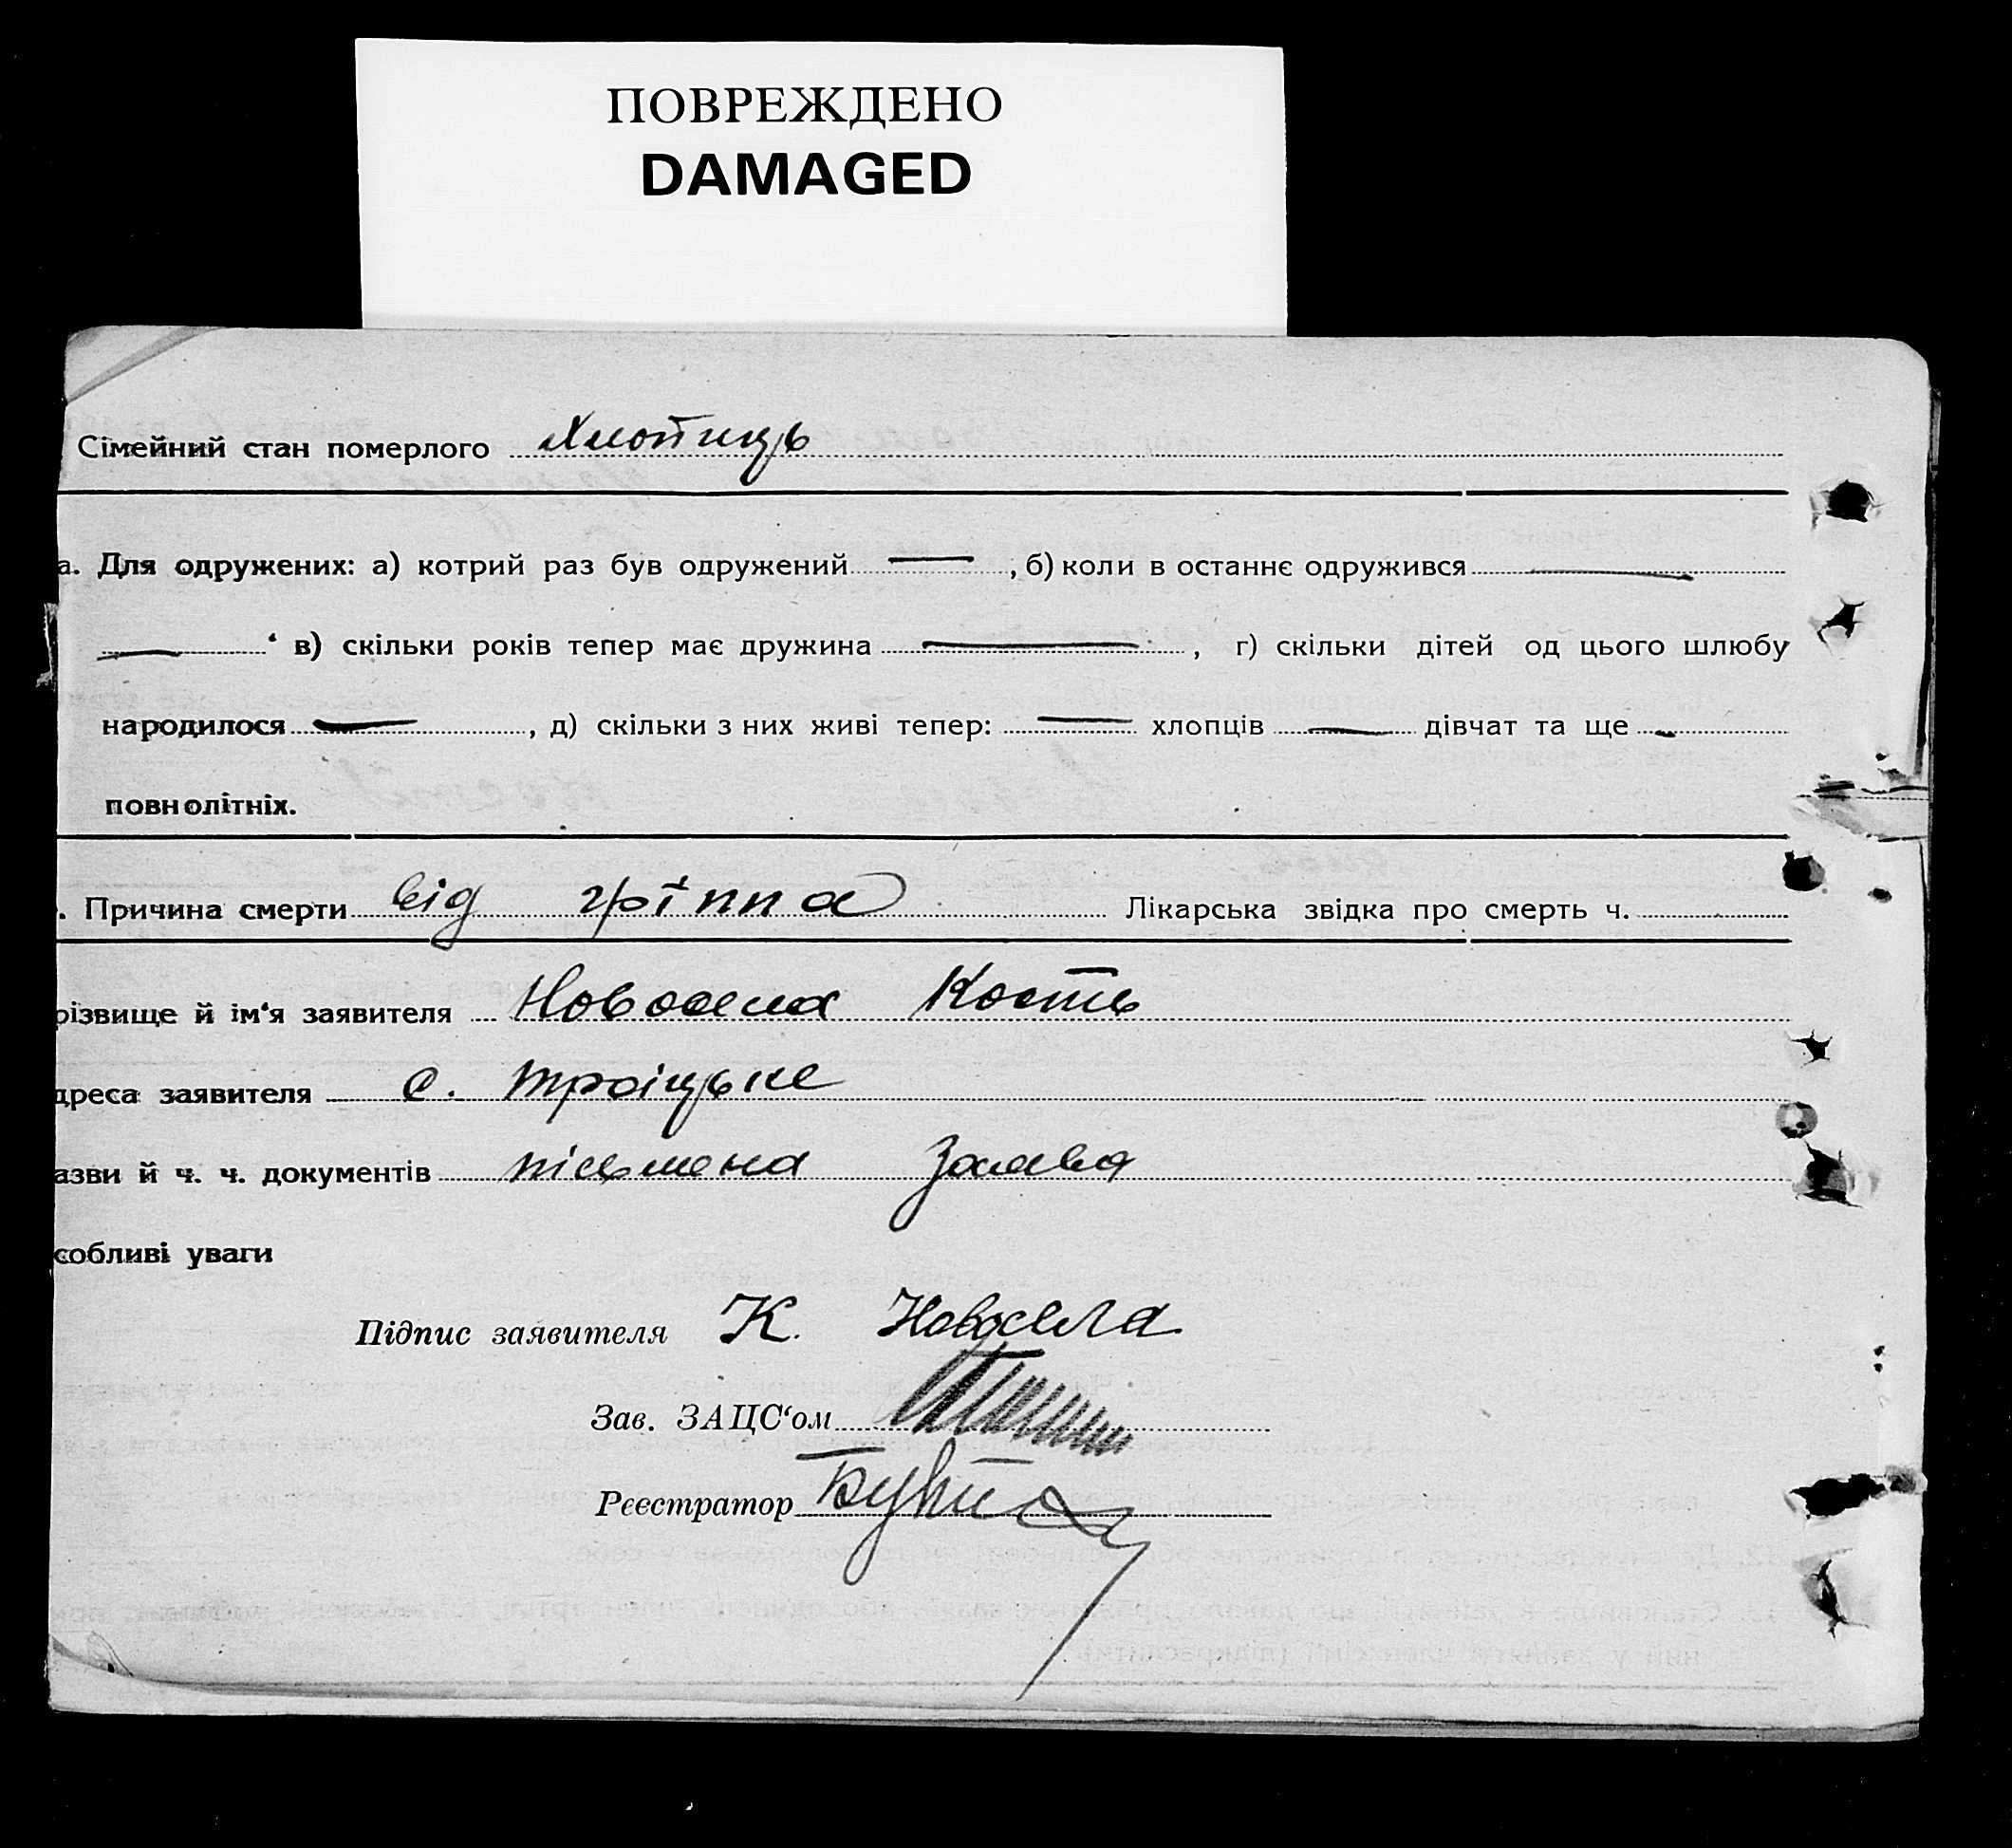 ПОВРЕЖДЕНО
DAMAGED
Сімейний стан померлого Хлопиць
а. Для одружених: а) котрий раз був одружений — , б) коли в останнє одружився —
— ‘ в) скільки років тепер має дружина — , г) скільки дітей од цього шлюбу
народилося — , д) скільки з них живі тепер: — хлопців — дівчат та ще —
повнолітніх.
. Причина смерти від гріппа Лікарська звідка про смерть ч.
різвище й ім‘я заявителя Новосела Кость
дреса заявителя с. Троіцьке
азви й ч. ч. документів письмена заява
собливі уваги
Підпис заявителя К. Новосела
Зав. ЗАЦС‘ом
Реєстратор